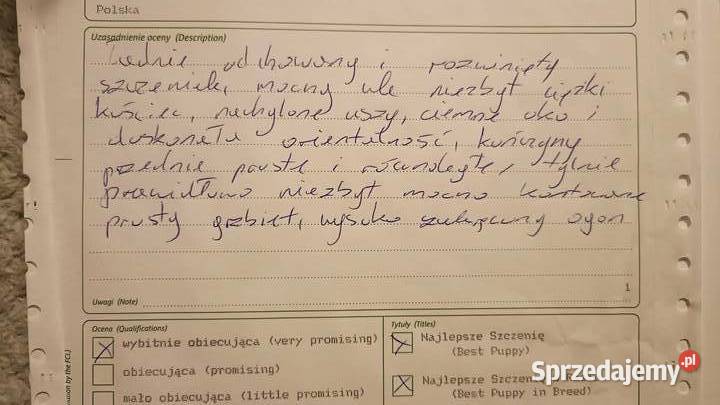 Polska
Uzasadnienie oceny (Description)
Ładnie odchowany i rozwinięty
szczeniak, mocny ale niezbyt ciężki
kościec, nachylone uszy, ciemne oko i
doskonała orientalność, kończyny
przednie proste i równoległe, tylnie
prawidłowo niezbyt mocno kątowane
prosty grzbiet, wysoko zakręcony ogon
1
Uwagi (Note)
Ocena (Qualifications)
Tytuły (Titles)
wybitnie obiecująca (very promising)
Najlepsze Szczenię
(Best Puppy)
obiecująca (promising)
Najlepsze Szczenię
(Best Puppy in Breed)
mało obiecująca (little promising)
by the FCI)
Sprzedajemy.pl